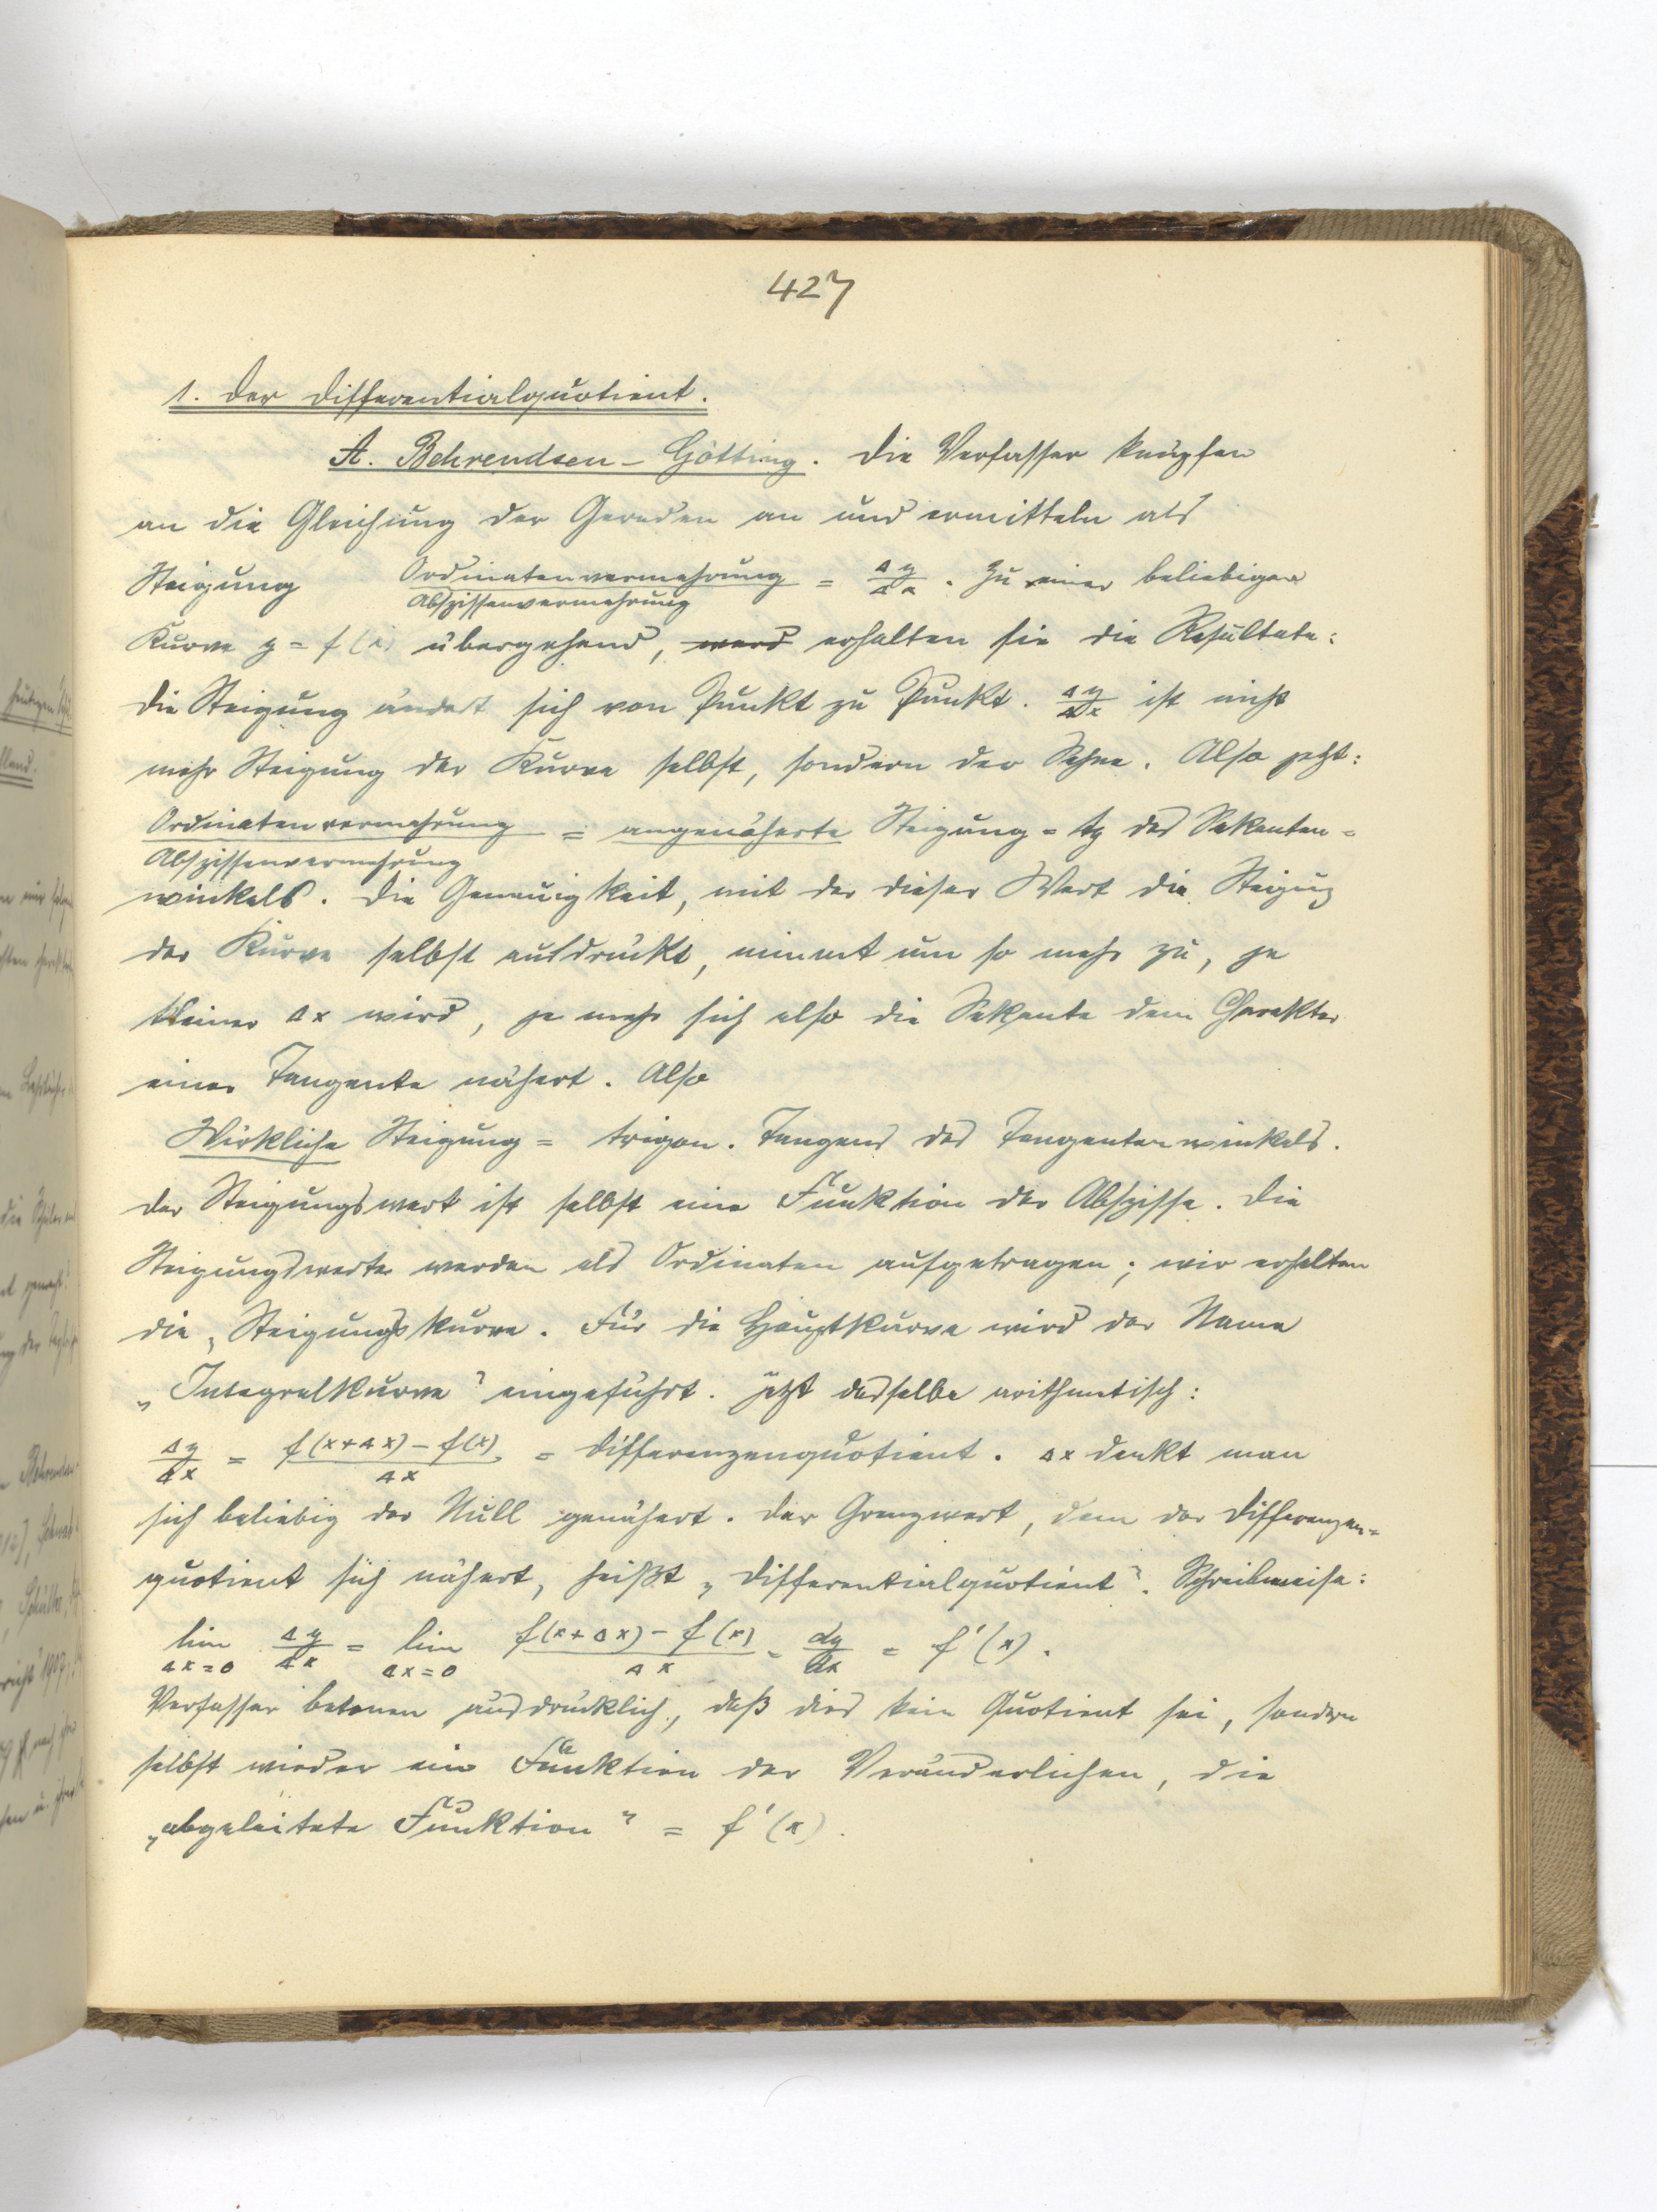 427
1. Der Differentialquotient.
A. Behrendsen - Götting. Die Verfasser knüpfen
an die Gleichung der Geraden an und ermitteln als
Steigung Ordinatenvermehrung / Abszissenvermehrung = Δy/Δx. Zu einer beliebigen
Kurve y = f(x) übergehend, werd erhalten sie die Resultate:
Die Steigung ändert sich von Punkt zu Punkt. Δy/Δx ist nicht
mehr Steigung der Kurve selbst, sondern der Sehne. Also jetzt:
Ordinatenvermehrung / Abszissenvermehrung = angenäherte Steigung = tg des Sekanten-
winkels. Die Genauigkeit, mit der dieser Wert die Steigung
der Kurve selbst ausdrückt, nimmt um so mehr zu, je
kleiner Δx wird, je mehr sich also die Sekante dem Charakter
einer Tangente nähert. Also
Wirkliche Steigung = trigon. Tangens des Tangentenwinkels.
Der Steigungswert ist selbst eine Funktion der Abszisse. Die
Steigungswerte werden als Ordinaten aufgetragen; wir erhalten
die „Steigungskurve. Für die Hauptkurve wird der Name
„Integralkurve“ eingeführt. Jetzt dasselbe arithmetisch:
Δy/Δx = f(x+Δx) - f(x) / Δx = Differenzenquotient. Δx denkt man
sich beliebig der Null genähert. Der Grenzwert, dem der Differenzen-
quotient sich nähert, heißt „Differentialquotient“. Schreibweise:
lim Δx=0 Δy/Δx = lim Δx=0 f(x+Δx) - f(x) / Δx = dy/dx = f'(x).
Verfasser betonen ausdrücklich, daß dies kein Quotient sei, sondern
selbst wieder eine Funktion der Veränderlichen, die
„abgeleitete Funktion“ = f'(x).